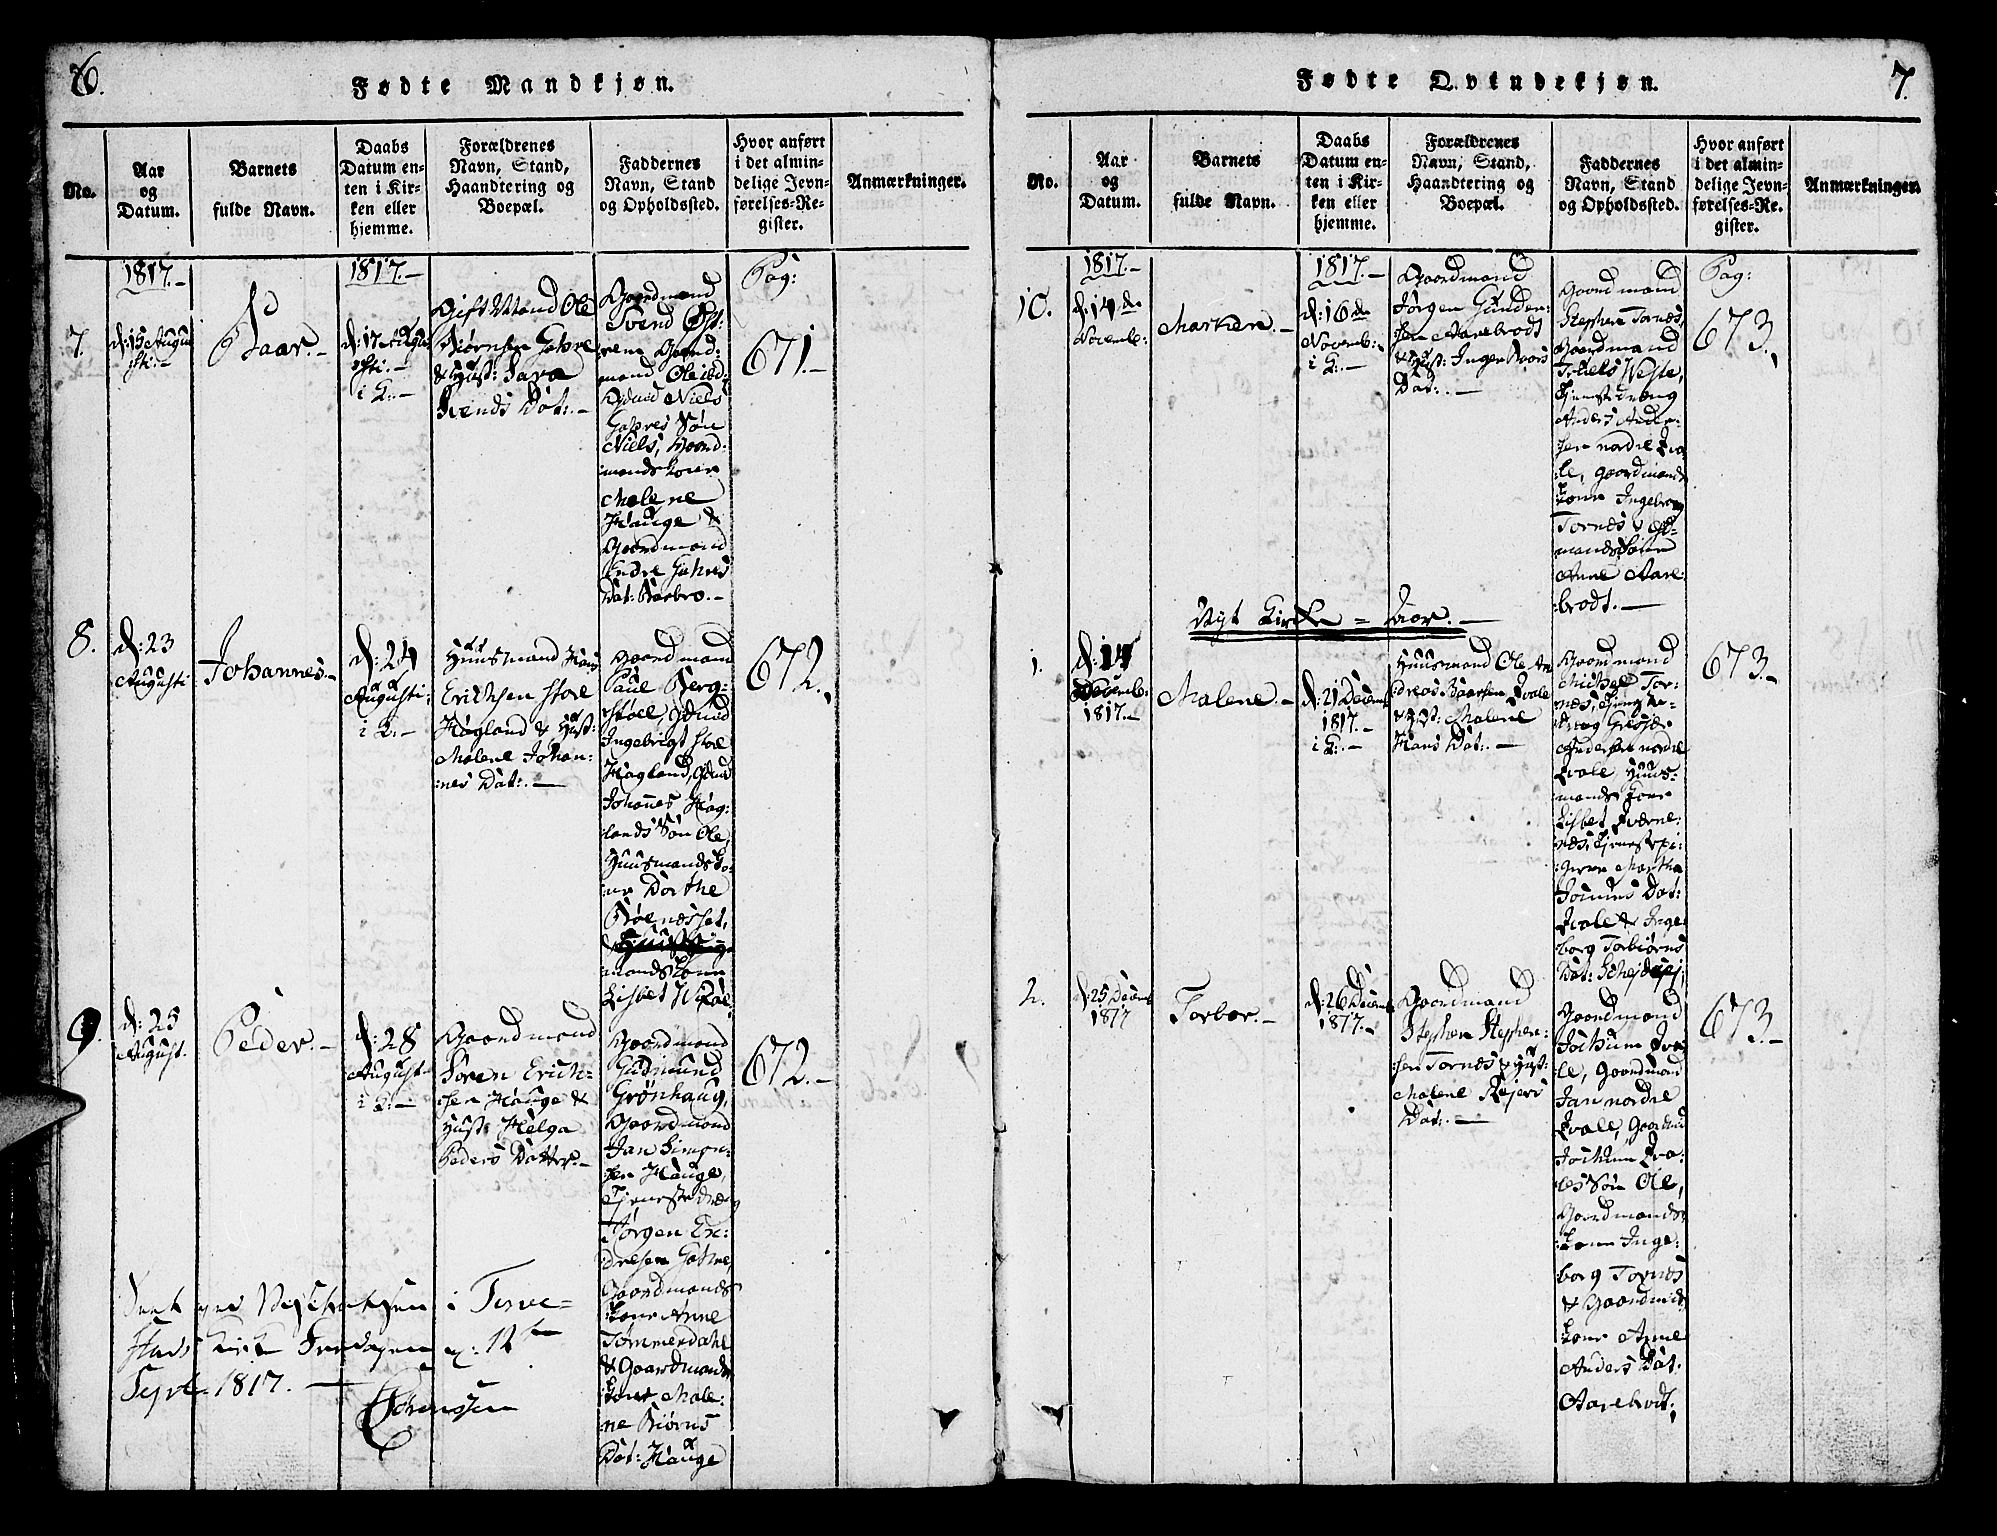 6.
Fødte Mandkjøn.
No.
Aar
og
Datum.
Barnets
fulde Navn.
Daabs
Datum en-
ten i Kir-
ken eller
hjemme.
Forældrenes
Navn, Stand,
Haandtering og
Boepæl.
Faddernes
Navn, Stand
og Opholdssted.
Hvor anført
i det almin-
delige Jevn-
førelses-Re-
gister.
Anmærkninger.
1817.-
7.
d: 15 Augu
sti.-
Baar.-
1817.-
d: 17 Augu
sti.-
i K:-
Gift Mand Ole
Biørnsen
& Hust: Sara
Svends Dat:.-
Gaardmand
Svend
Gaard-
mand Ole ibd:
Niels
Søn
Niels, Gaard:
mandskone
Malene
Hauge &
Gaardmand
Endre
Dat: Barbro.-
Pag:
671.-
8.
d: 23
Augusti
Johannes.-
d: 24
Augusti:
i K:-
Huusmand Hans
Erichsen store
Hagland & Hust:
Malene Johan-
nes Dat:.-
Gaardmand
Paul Berg-
støel,
Ingebrigt store
Hagland,
Johannes Hag-
lands Søn Ole,
Huusmands Ko-
ne Dorthe
mands Kone
Lisbet
672.
9.
d: 25
August.
Peder.-
d: 28
August-
i K:-
Gaardmand
Søren Erich-
sen Hauge &
Hust: Helga
Peders Datter.-
Gaardmand
Gudmund
Grønhaug,
Gaardmand
Jan Simon-
sen Hauge,
Tjenestedreng
Jørgen
Gaardmands
Kone Anne
Tømmerdahl
& Gaardmands
Kone Male-
ne Biørns
Dat: Hauge
672.-
i Torve-
d: 12te
Sept. 1817.
7.
Fødte Qvindekjøn.
No.
Aar
og
Datum.
Barnets
fulde Navn.
Daabs
Datum en-
ten i Kir-
ken eller
hjemme.
Forældrenes
Navn, Stand,
Haandtering og
Boepæl.
Faddernes
Navn, Stand
og Opholdssted.
Hvor anført
i det almin-
delige Jevn-
førelses-Re-
gister.
Anmærkninger.
1817.-
10.
d: 14de
Novemb:
Marken.-
1817.-
d: 16de
Novemb:
i K:-
Gaardmand
Jørgen Gunder-
sen Aarebrodt
& Hust: Inger Baars
Dat:.-
Gaardmand
Stephen Tornes,
Gaardmand
Tjenestdreng
Anders Ander-
sen nordre Kva-
le, Gaardmands
Kone Ingeborg
Tornes &
mands Kone
Anne Aare-
brodt.-
Pag:
673.
Nyt Kirke = Aar.-
1.
d: 14
Decemb:
1817.-
Malene.-
d: 21 Decemb
1817.-
i K:-
Huusmand Ole An
dreas Baarsen Kvale
& Hust: Malene
Hans Dat:.-
Gaardmand
Michel Tor-
nes,
nordre
Kvale, Huus-
mands Kone
Lisbet Kværne-
næs, Tjenestepi-
gerne Martha
Dat:
Kvale & Inge
borg Torbiørns
Dat:
673.-
2.
d: 25 Decemb
1817
Torbor.-
d: 26 Decemb
1817.-
Gaardmand
Stephen Stephen-
sen Tornes & Hust:
Malene
Dat:.-
Gaardmand
Jochum Kva-
le, Gaardmand
Jan nordre
Kvale,
Jochum Kva-
les Søn Ole,
Gaardmands
Kone Inge-
borg Tornes
& Gaardmds
Kone Anne
Anders Dat:
Aarebrodt.
673.-